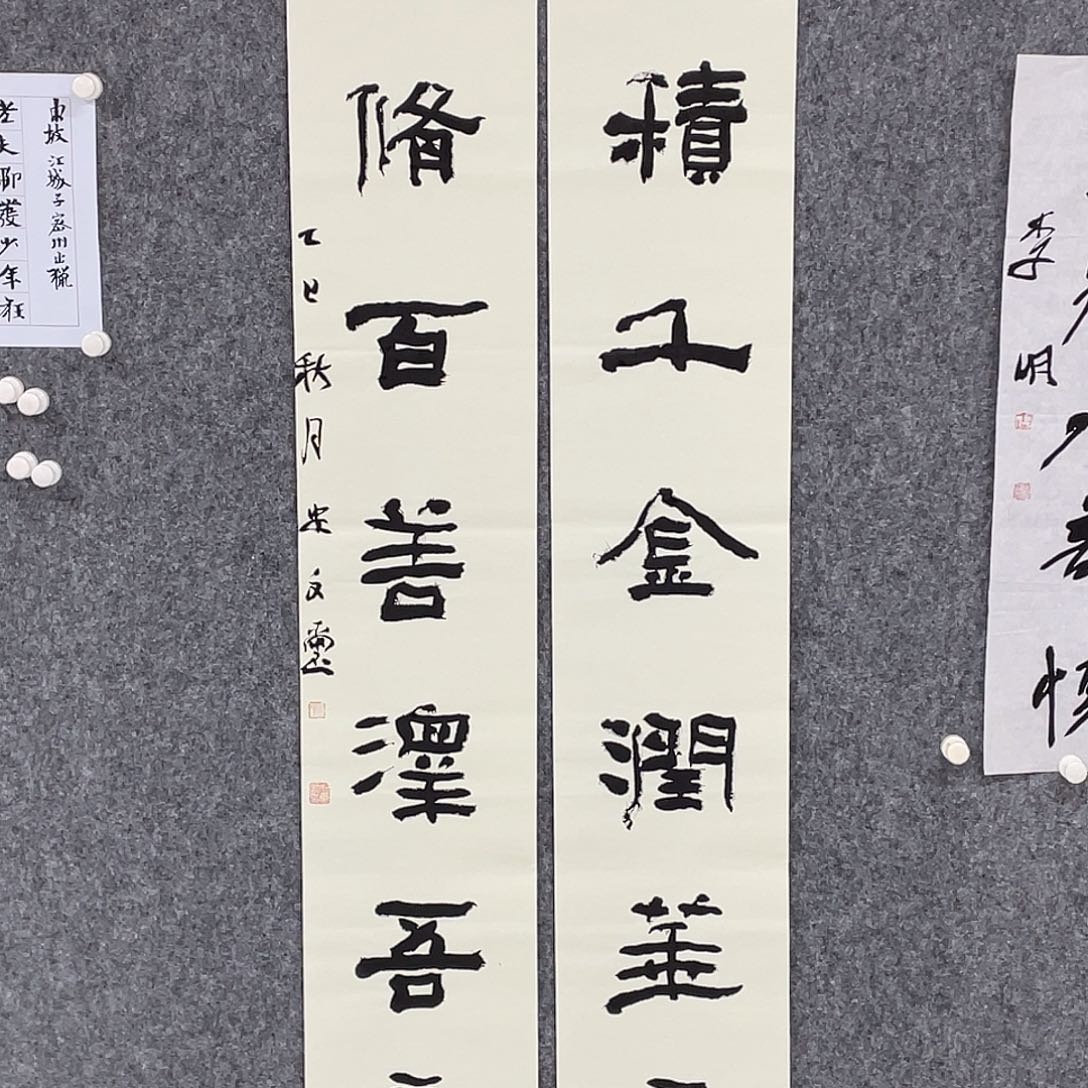 李明
積千金潤華
脩百善澤吾
乙巳秋月 文
東坡江城子密州出獵
老夫聊發少年狂